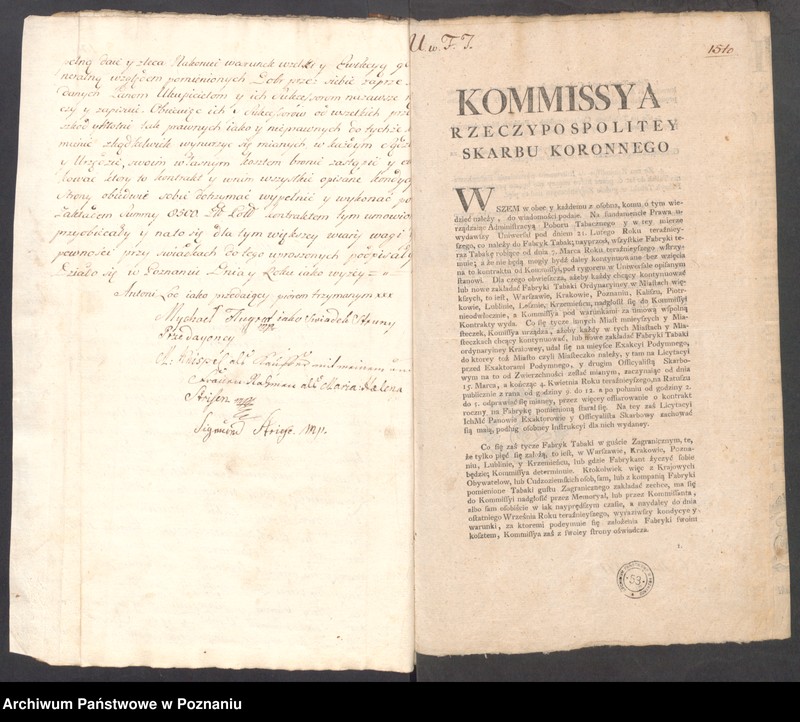 pełną daie y zleca Rukoncie warunek wszelki y Ewikcyą
neralną względem pomienionych Dobr przez siebie
danych Panom Ukupicielom y ich Sukcessorom
czy y zapisuie. Obowiązuie ich y Sukcessorow od wszelkich
szkod y kłotni tak prawnych iako y nieprawnych do tychże
mienie zkądkolwiek wynurzyć się mianych w każdym
y Urzędzie, swoim własnym kosztem bronić zastąpić y
ktory to kontrakt y w nim wszystkie opisane
Strony obiedwie sobie dotrzymać wypełnić y wykonać
Zakładem summy Zł Pold kontraktem tym
przyobiecały y na to się dla tym większey wiary wagi
pewności przy świadkach do tego uproszonych podpisały
Działo się w Poznaniu Dnia y Roku iako wyżey
Antoni iako przedaiący piorem trzymanym xxx
Mychael iako Swiadek Strony
Przedaiącey
Sigmund
U w. F. J.
1510
KOMMISSYA
RZECZYPOSPOLITEY
SKARBU KORONNEGO
WSZEM w obec y każdemu z osobna, komu o tym wie-
dzieć należy, do wiadomości podaie. Na fundamencie Prawa u-
rządzaiąc Administracyą Poboru Tabacznego y w tey mierze
wydawszy Uniwersał pod dniem 21. Lutego Roku teraźniey-
szego, co należy do Fabryk Tabak; nayprzod, wszystkie Fabryki te-
raz Tabakę robiące od dnia 7. Marca Roku teraźnieyszego wstrzy-
muie; a że nie będą mogły bydź daley kontynuowane bez wzięcia
na to kontraktu od Kommissyi, pod rygorem w Uniwersale opisanym
stanowi. Dla czego obwieszcza, ażeby każdy chcący kontynuować
lub nowe zakładać Fabryki Tabaki Ordynaryiney w Miastach więk-
szych, to iest, w Warszawie, Krakowie, Poznaniu, Kaliszu, Piotr-
kowie, Lublinie, Lesznie, Krzemieńcu, nadgłosił się do Kommissyi
nieodwłocznie, a Kommissya pod warunkami za umową wspolną
Kontrakty wyda. Co się tycze innych Miast mnieyszych y Mia-
steczek, Kommissya urządza, ażeby każdy w tych Miastach y Mia-
steczkach chcący kontynuować, lub nowe zakładać Fabryki Tabaki
ordynaryiney Kraiowey, udał się na mieysce Exakcyi Podymnego,
do ktorey toż Miasto czyli Miasteczko należy, y tam na Licytacyi
przed Exaktorami Podymnego, y drugim Officyalistą Skarbo-
wym na to od Zwierzchności zesłać mianym, zaczynaiąc od dnia
15. Marca, a kończąc 4. Kwietnia Roku teraźnieyszego, na Ratuszu
publicznie z rana od godziny 9. do 12. a po południu od godziny 2.
do 5. odprawiać się mianey, przez więcey offiarowanie o kontrakt
roczny na Fabrykę pomienioną starał się. Na tey zaś Licytacyi
IchMć Panowie Exaktorowie y Officyalista Skarbowy zachować
się maią, podług osobney Instrukcyi dla nich wydaney.
Co się zaś tycze Fabryk Tabaki w guście Zagranicznym, te,
że tylko pięć się założą, to iest, w Warszawie, Krakowie, Pozna-
niu, Lublinie, y Krzemieńcu, lub gdzie Fabrykant życzyć sobie
będzie; Kommissya determinuie. Ktokolwiek więc z Kraiowych
Obywatelow, lub Cudzoziemskich osob, sam, lub z kompanią Fabryki
pomienione Tabaki gustu Zagranicznego zakładać zechce, ma się
do Kommissyi nadgłosić przez Memoryał, lub przez Kommissanta,
albo sam osobiście w iak nayprędszym czasie, a naydaley do dnia
ostatniego Września Roku teraźnieyszego, wyraziwszy kondycye y
warunki, za ktoremi podeymuie się założenia Fabryki swoim
kosztem, Kommissya zaś z swoiey strony oświadcza.
1.
53
Archiwum Państwowe w Poznaniu